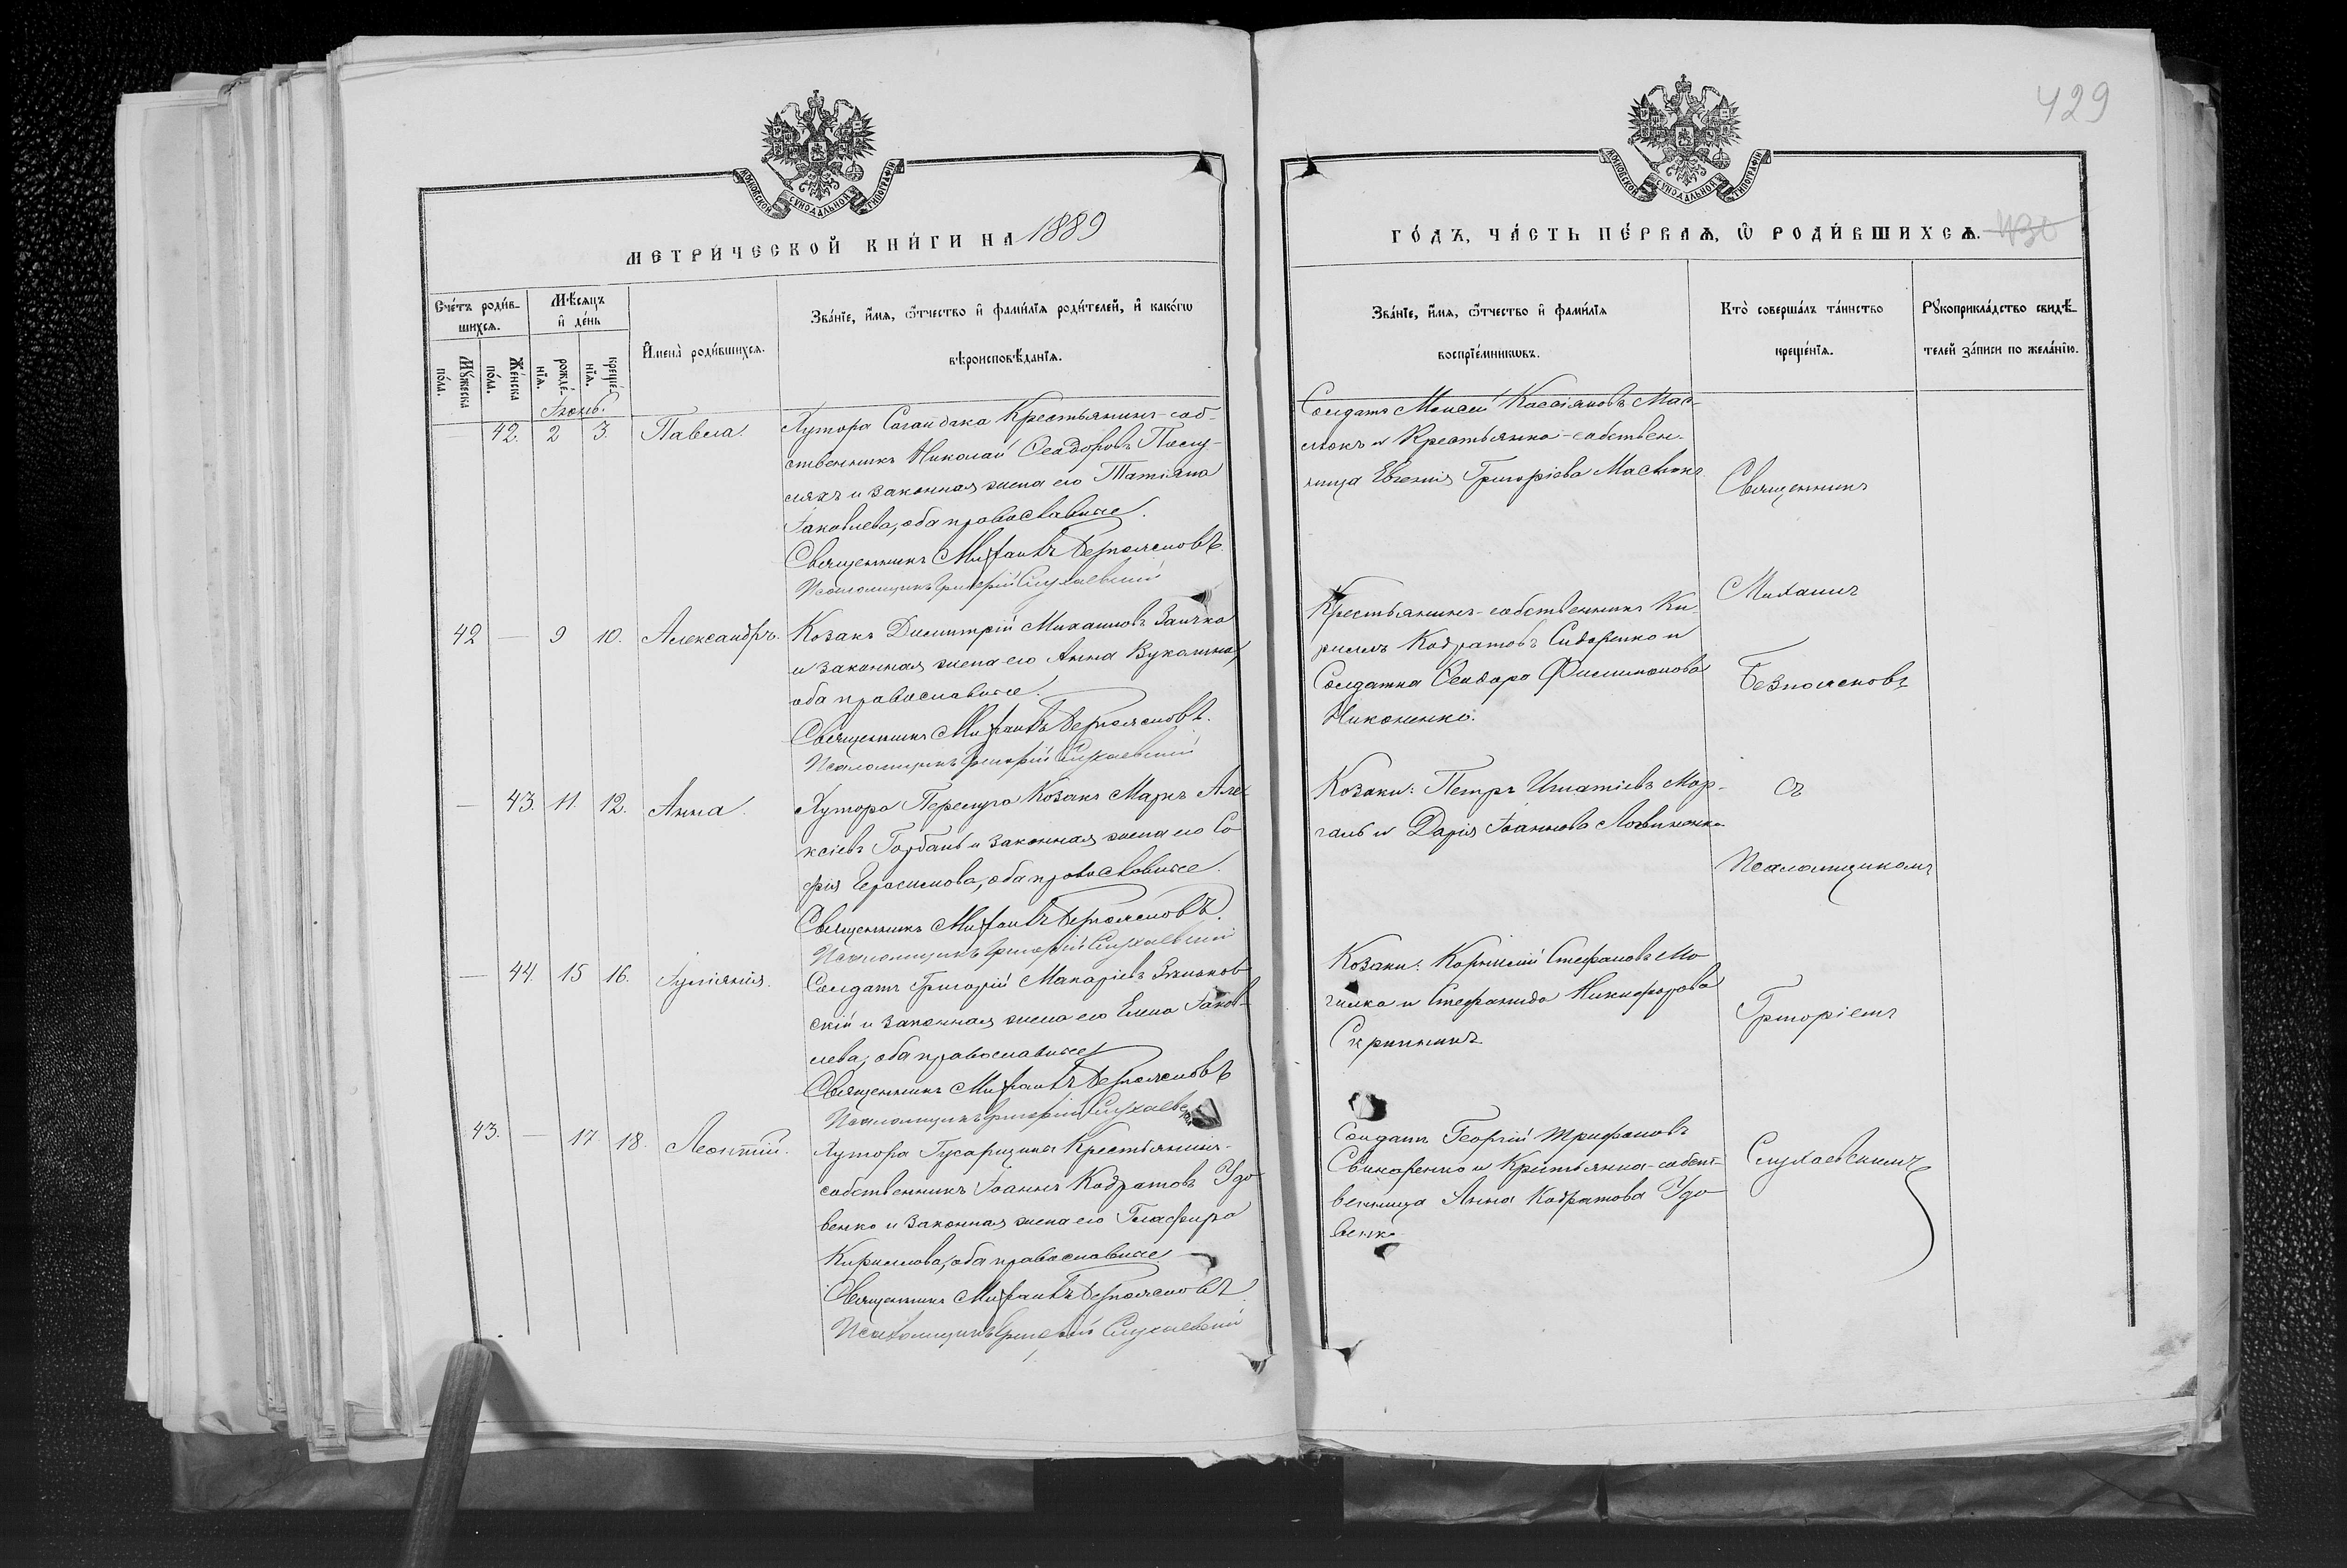 429
МОСКОВСКОЙ СѴНОДАЛЬНОЙ ТИПОГРАФІИ
МОСКОВСКОЙ СѴНОДАЛЬНОЙ ТИПОГРАФІИ
МЕТРИ́ЧЕСКОЙ КНИ́ГИ НА 1889
ГО́ДЪ, ЧА́СТЬ ПЕ́РВАѦ, Ѡ РОДИ́ВШИХСѦ. 430
Сче́тъ роди́в-
шихсѧ.
Мꙋ́жеска
по́ла.
Же́нска
по́ла.
Мѣ́сѧцъ
и҆ де́нь
рожде́-
нїѧ.
креще́-
нїѧ.
И҆мена̀ роди́вшихсѧ.
Зва́нїе, и҆́мѧ, ѻ҆́тчество и҆ фами́лїѧ роди́телей, и҆ како́гѡ
вѣроисповѣ́данїѧ.
Зва́нїе, и҆́мѧ, ѻ҆́тчество и҆ фами́лїѧ
воспрїе́мникѡвъ.
Кто̀ соверша́лъ та́инство
креще́нїѧ.
Рꙋкоприкла́дство свидѣ́-
телей за́писи по жела́нїю.
Іюнь.
— 42. 2 3. Павла.
Хутора Сагайдака Крестьянинъ-соб-
ственникъ Николай Ѳеодоровъ
и законная жена его Татіана
Іаковлева, оба православные.
Священникъ Михаилъ Безпоясновъ.
Псаломщикъ Григорій Слухаевскій
Солдатъ Моисей Кассіановъ Мас-
люкъ и Крестьянка-собствен-
ница Евгенія Григоріева Маслюкъ
42 — 9 10. Александръ.
Козакъ Димитрій Михаиловъ Заичко
и законная жена его Анна Вуколова,
оба православные.
Священникъ Михаилъ Безпоясновъ.
Псаломщикъ Григорій Слухаевскій
Крестьянинъ-собственникъ Ки-
риллъ Кодратовъ Сидоренко и
Солдатка Ѳеодора Филимонова
Никоненко.
— 43. 11. 12. Анна.
Хутора Козакъ Маркъ Але-
ксіевъ Горбань и законная жена его Со-
фія Герасимова, оба православные.
Священникъ Михаилъ Безпоясновъ.
Псаломщикъ Григорій Слухаевскій
Козаки: Петръ Игнатіевъ Мор-
галь и Дарія Іоаннова
— 44. 15 16. Іуліанія.
Солдатъ Григорій Макаріевъ Зѣньков-
скій и законная жена его Елена Іаков-
лева, оба православные
Священникъ Михаилъ Безпоясновъ
Псаломщикъ Григорій Слухаевскій
Козаки: Корнилій Стефановъ Мо-
гилка и Стефанида Никифорова
Скрипникъ
43. — 17. 18. Леонтій.
Хутора Гусарщина Крестьянинъ-
собственникъ Іоаннъ Кодратовъ Удо-
венко и законная жена его Глафира
Кириллова, оба православные
Священникъ Михаилъ Безпоясновъ
Псаломщикъ Григорій Слухаевскій
Солдатъ Георгій Трифоновъ
Свинаренко и Крестьянка-собст-
венница Анна Кодратова Удо-
венко
Священникъ
Михаилъ
Безпоясновъ
съ
Псаломщикомъ
Григоріемъ
Слухаевскимъ